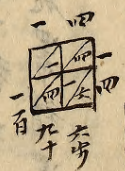 一 四
一 四 一
四 一 六 四
一百
九十
六步